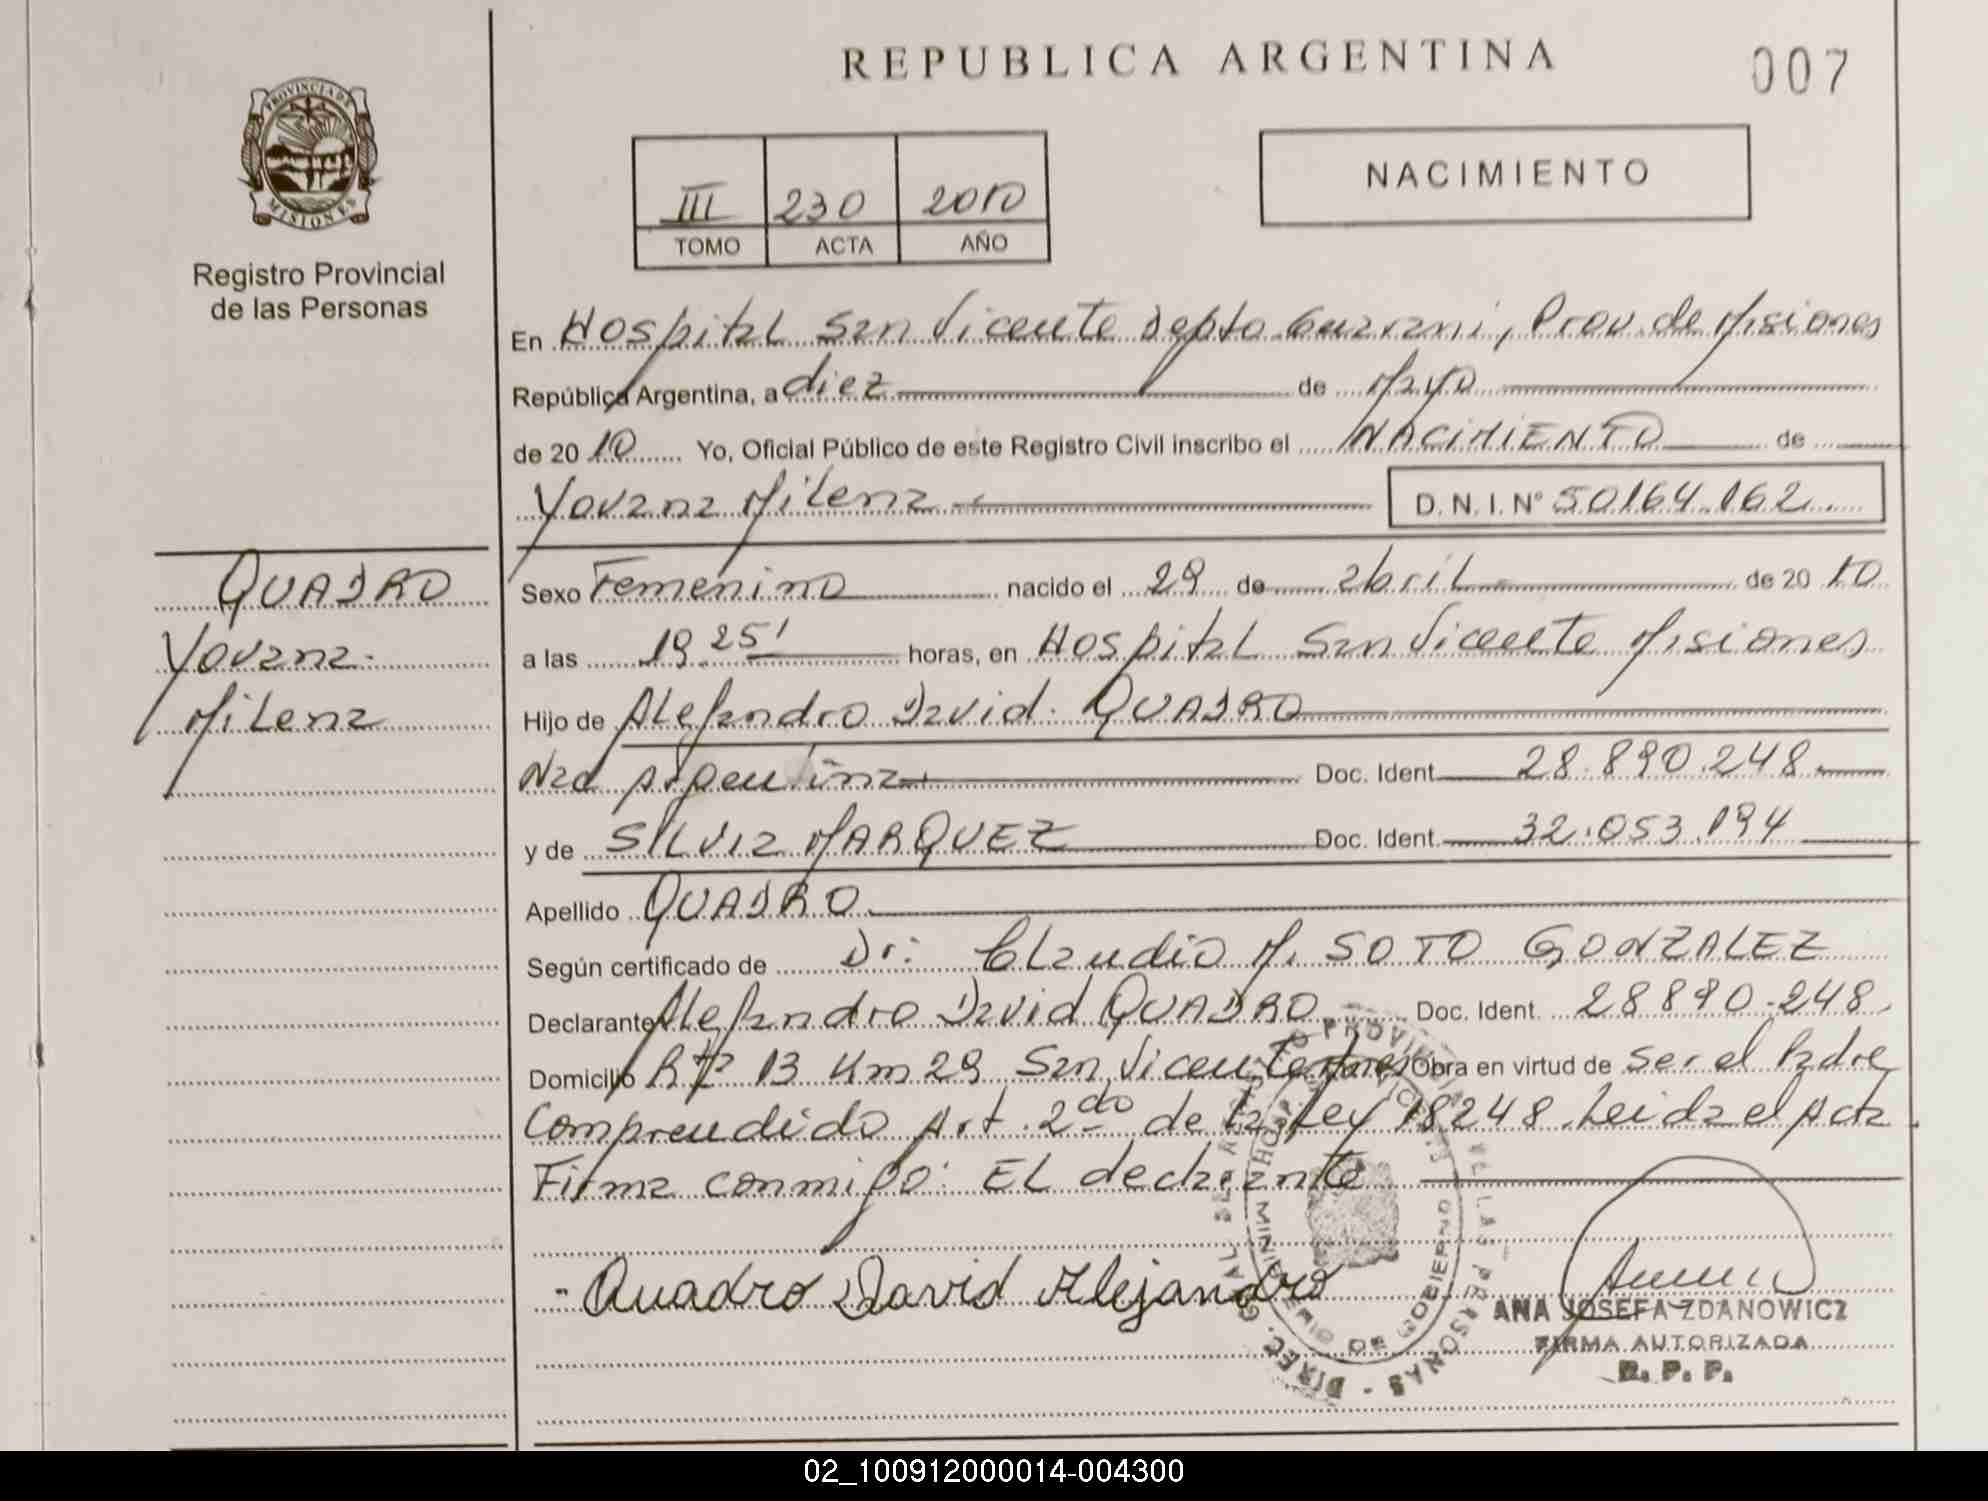 REPUBLICA ARGENTINA
007
PROVINCIA DE
MISIONES
Registro Provincial
de las Personas
III 230 2010
TOMO ACTA AÑO
NACIMIENTO
En Hospital San Vicente Depto Guarani, Prov. de Misiones
República Argentina, a diez de Mayo
de 20 10 Yo, Oficial Público de este Registro Civil inscribo el NACIMIENTO de
Yovana Milena D. N. I. N° 50164.162
QUADRO
Yovana
Milena
Sexo Femenino nacido el 29 de abril de 20 10
a las 19 25' horas, en Hospital San Vicente Misiones
Hijo de Alejandro David QUADRO
Nac Argentina Doc. Ident. 28.890.248
y de SILVIA MARQUEZ Doc. Ident. 32.053.194
Apellido QUADRO
Según certificado de Dr: Claudio M. SOTO GONZALEZ
Declarante Alejandro David QUADRO Doc. Ident. 28890.248
Domicilio 13 Km 29 San Vicente Mnes Obra en virtud de Ser el Padre
Comprendido Art. 2do de la Ley 18248. Leida el Acta
Firma conmigo: EL declarante
- Quadro David Alejandro
ANA JOSEFA ZDANOWICZ
FIRMA AUTORIZADA
R. P. P.
02_100912000014-004300